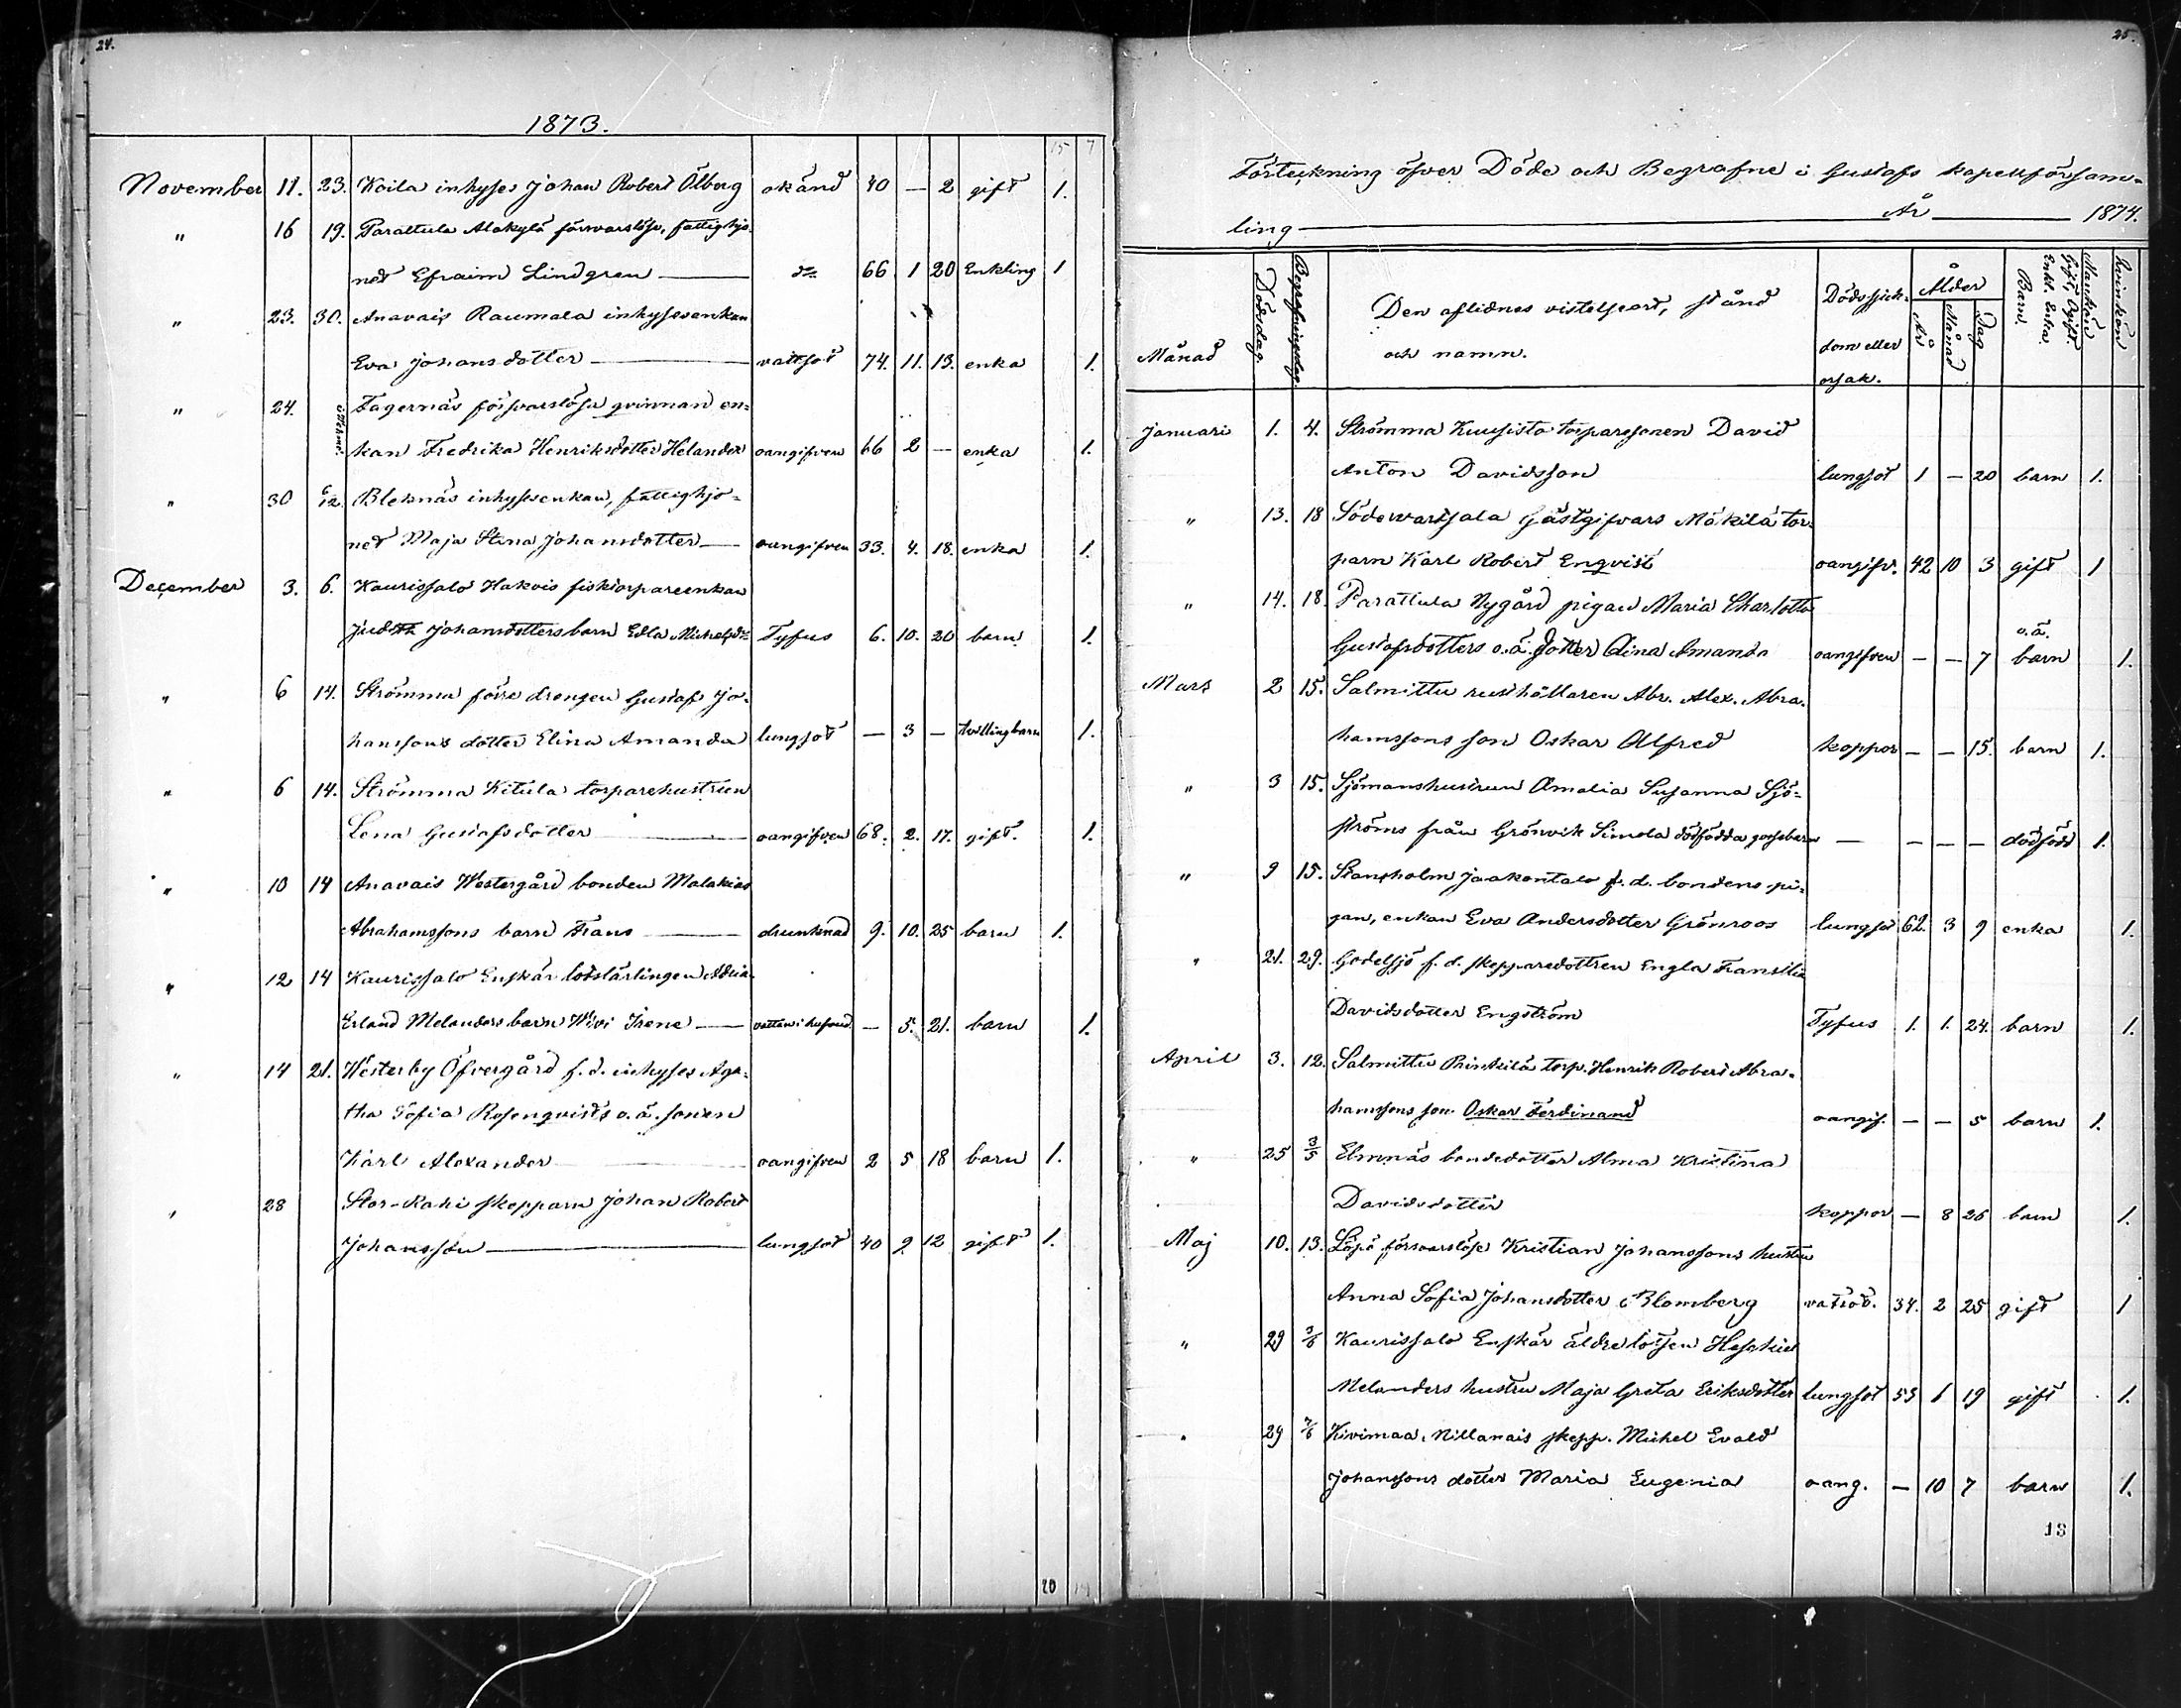 24.
1873.
15 7
November 11. 23. Koila inhyses Johan Robert Ölberg okänd 40 — 2 gift 1.
" 16 19. Parattula Alakylä försvarslöse, fattighjo-
net Efraim Lindgren — d:o 66 1 20 Enkling 1
" 23. 30. Anavais Raumala inhysesenkan
Eva Johansdotter — vattsot 74. 11. 13. enka 1.
" 24. Fagernäs försvarslösa qvinnan en-
kan Fredrika Henriksdotter Helander oangifven 66 2 — enka 1.
" 30 6/12 Bleknäs inhysenkan, fattighjo-
net Maja Stina Johansdotter — oangifven 33. 4. 18. enka 1.
December 3. 6. Kaurissalo Hakois fisktorpareenkan
Judith Johansdotters barn Edla Michelsdr Tyfus 6. 10. 20 barn 1.
" 6 14. Strömma förre drengen Gustaf Jo-
hanssons dotter Elina Amanda lungsot — 3 — tvillingbarn 1.
" 6 14. Strömma Kitula torparehustrun
Lena Gustafsdotter — oangifven 68. 2. 17. gift. 1.
" 10 14 Anavais Westergård bonden Malakias
Abrahamssons barn Frans — drunknad 9. 10. 25 barn 1.
" 12 14 Kaurissalo Enskär lotslärlingen Adrian
Erland Melanders barn Wivi Irene — vatten i hufvud. — 5. 21. barn 1.
" 14 21. Westerby Öfvergård f.d. inhyses Aga-
tha Sofia Rosenqvists o.ä. sonen
Karl Alexander oangifven 2 5 18 barn 1.
" 28 Stor-Rahi skepparn Johan Robert
Johansson — lungsot 40 9 12 gift 1.
20
25.
Förteckning öfver Döde och Begrafne i Gustafs kapellförsam-
ling — År — 1874.
Månad Dödsdag. Begrafningsdag. Den aflidnes vistelseort, stånd
och namn. Dödssjuk-
dom eller
orsak. Ålder År Månad Dag Gift, Ogift. Enkl. Enka. Barn. Mankön Qvinkön
Januari 1. 4. Strömma Kuusisto torparesonen David
Anton Davidsson lungsot 1 — 20 barn 1.
" 13. 18 Södervartsala Gästgifvars Mäkilä tor-
parn Karl Robert Enqvist oangifv. 42 10 3 gift 1
" 14. 18. Parattula Nygård pigan Maria Charlotta
Gustafsdotters o.ä. dotter Aina Amanda oangifven — — 7 o.ä. barn 1.
Mars 2 15. Salmittu rusthållaren Abr. Alex. Abra-
hamssons son Oskar Alfred koppor — — 15. barn 1.
" 3 15. Sjömanshustrun Amalia Susanna Sjö-
ströms från Grönvik Simola dödfödda gossebarn — — — — dödfödd 1.
" 9 15. Skansholm Jaakontalo f.d. bondens pi-
gan, enkan Eva Andersdotter Grönroos lungsot 62. 3 9 enka 1.
" 21. 29. Godelsjö f.d. skepparedottren Engla Fransilia
Davidsdotter Engström Tyfus 1. 1. 24. barn 1.
April 3. 12. Salmittu Prinkilä torp. Henrik Robert Abra-
hamssons son Oskar Ferdinand oangif. — — 5 barn 1.
" 25 3/5 Elmnäs bondedotter Alma Kristina
Davidsdotter koppor — 8 26 barn 1.
Maj 10. 13. Löpö försvarslöse Kristian Johanssons hustru
Anna Sofia Johansdotter Blomberg vatsot. 34. 2 25 gift 1
" 29 Kaurissalo Enskär äldre lotsen Heskiel
Melanders hustru Maja Greta Eriksdotter lungsot 55 1 19 gift 1.
" 29 7/6 Kivimaa Nillanais skepp. Mikel Evald
Johanssons dotter Maria Eugenia oang. — 10 7 barn 1.
13